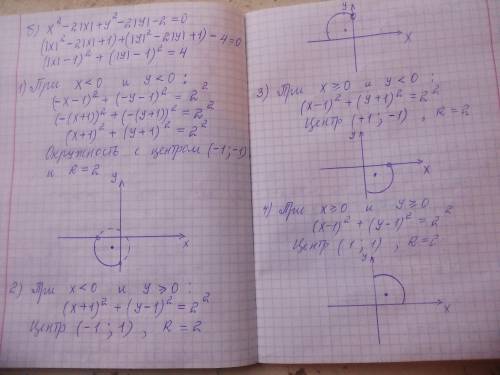 5) x² - 2|x| + y² - 2|y| - 2 = 0
(|x|² - 2|x| + 1) + (|y|² - 2|y| + 1) - 4 = 0
(|x| - 1)² + (|y| - 1)² = 4
1) При x < 0 и y < 0 :
(-x - 1)² + (-y - 1)² = 2²
(-(x+1))² + (-(y+1))² = 2²
(x+1)² + (y+1)² = 2²
Окружность с центром (-1; -1)
и R = 2
y
x
2) При x < 0 и y ≥ 0 :
(x+1)² + (y-1)² = 2²
Центр (-1; 1) , R = 2
y
x
3) При x ≥ 0 и y < 0 :
(x-1)² + (y+1)² = 2²
Центр (+1; -1) , R = 2
y
x
4) При x ≥ 0 и y ≥ 0
(x-1)² + (y-1)² = 2²
Центр (1; 1) , R = 2
y
x